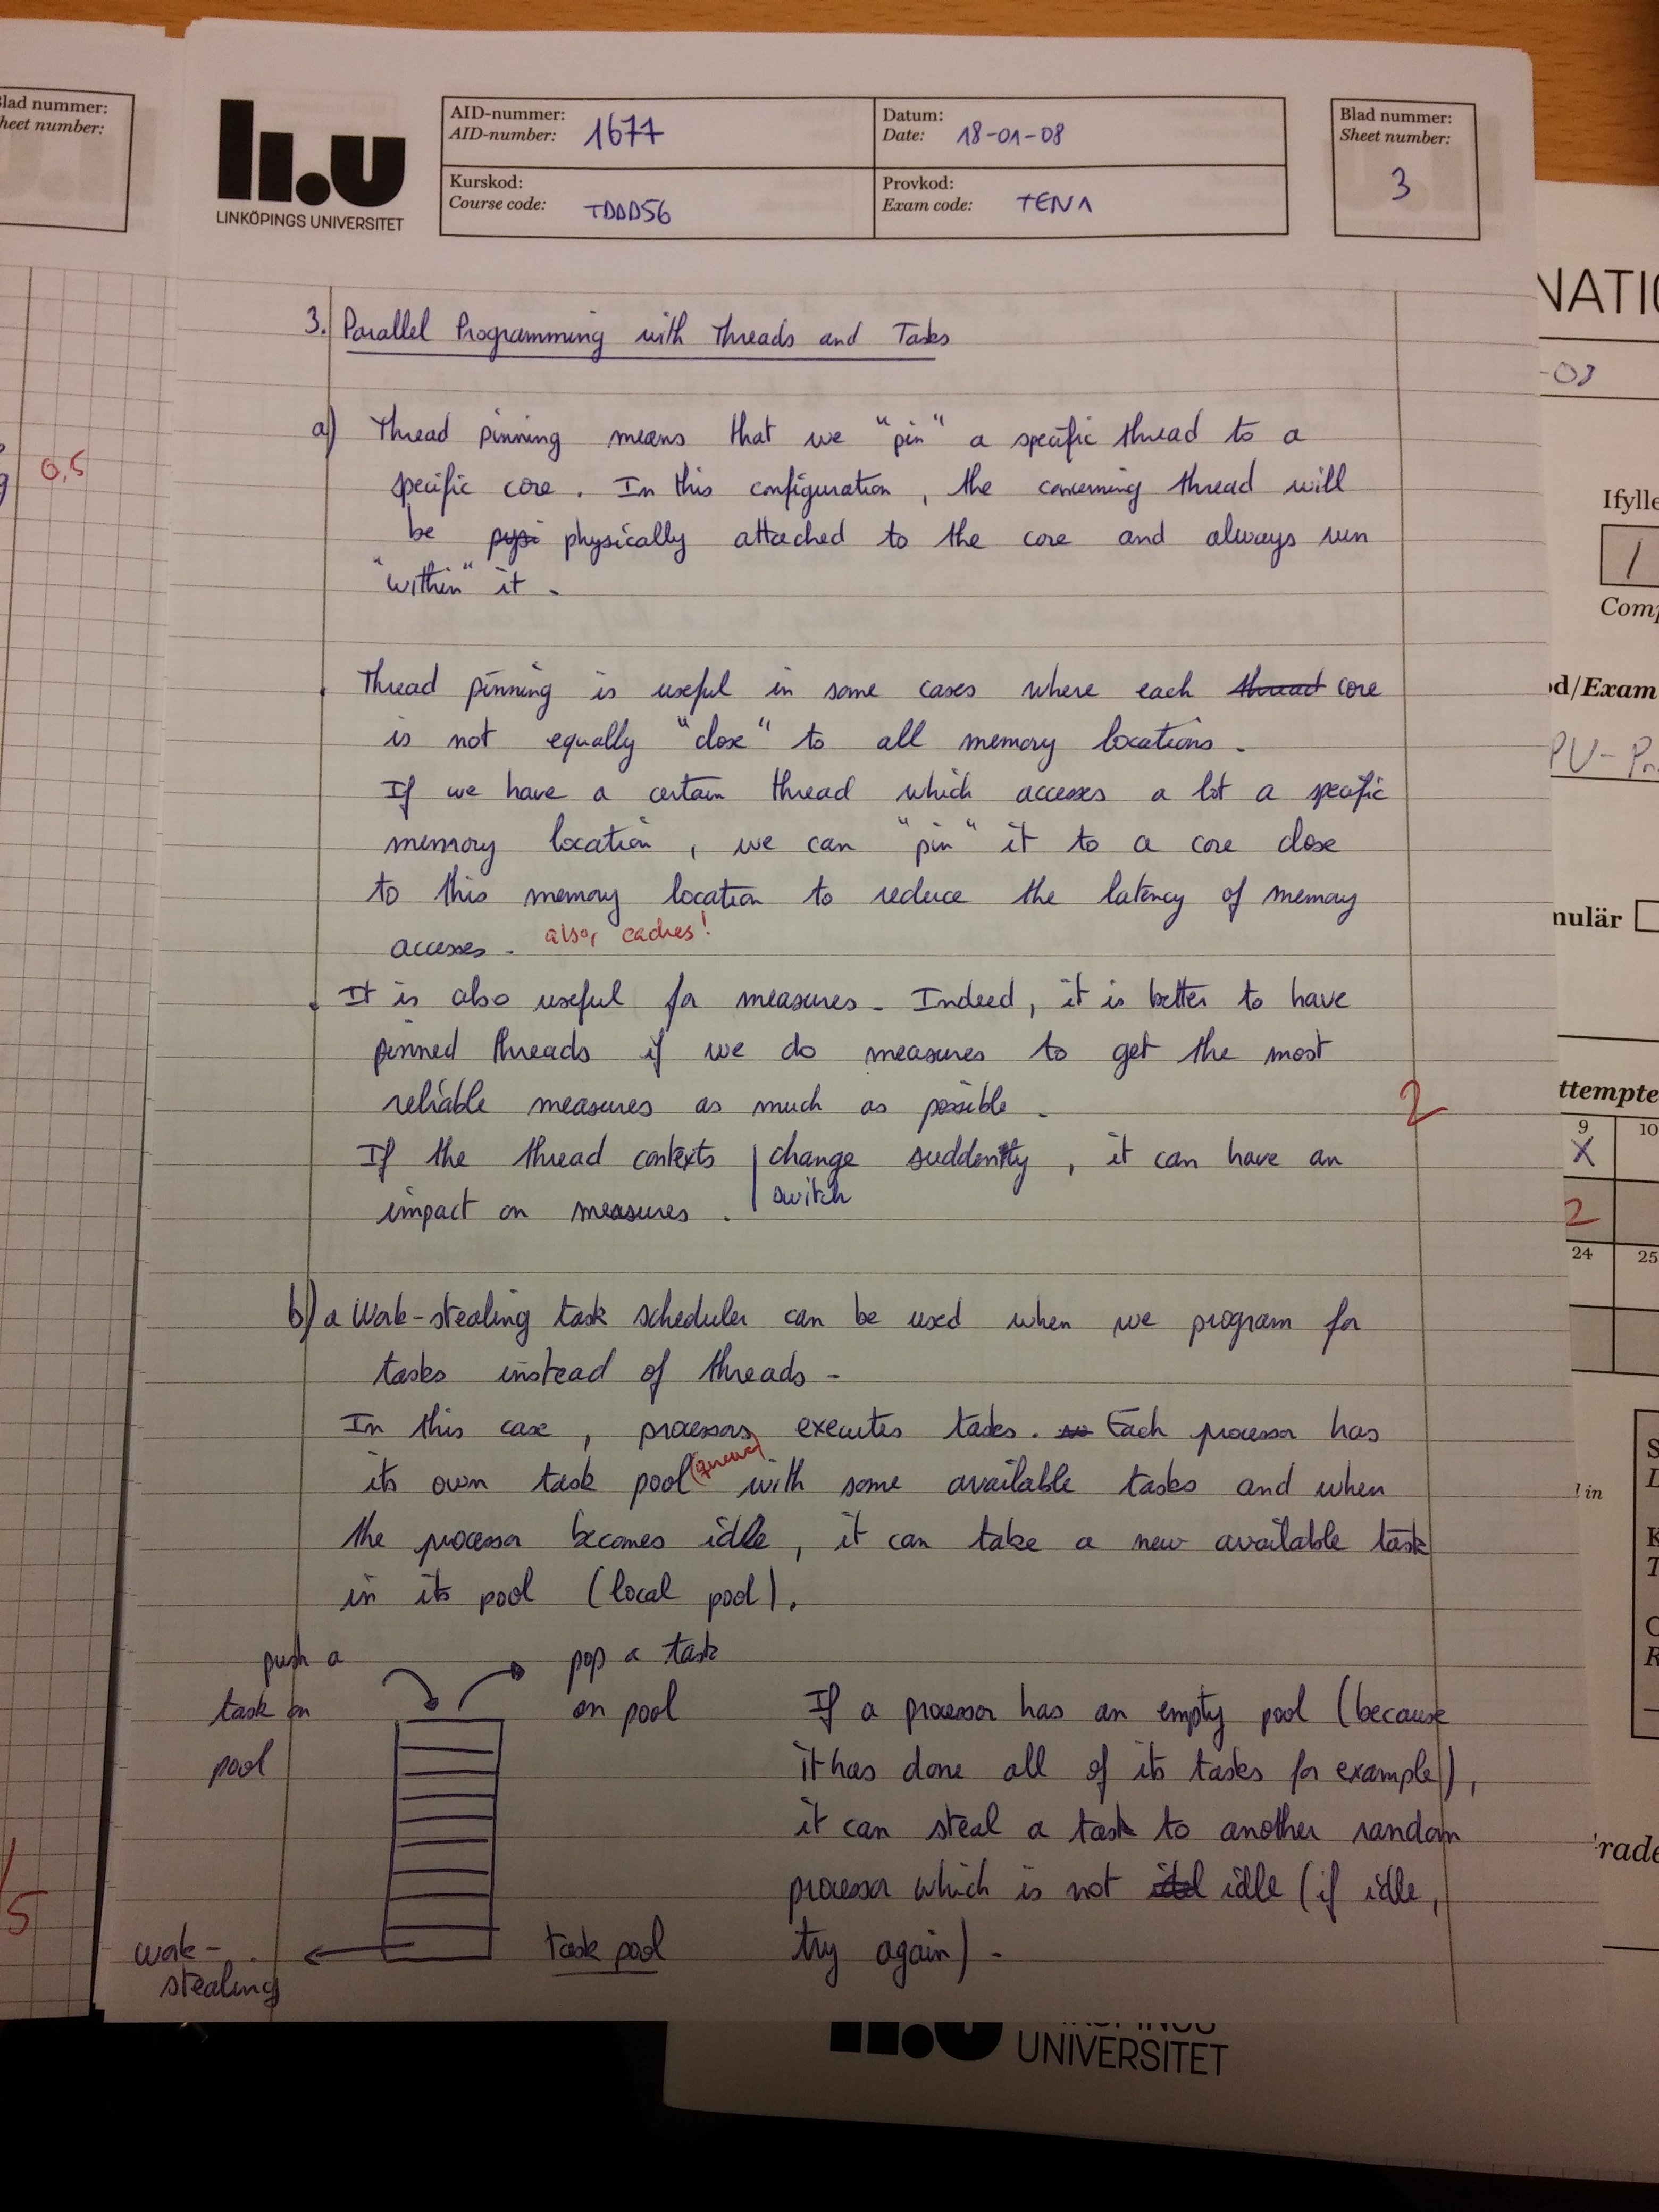 Blad nummer:
Sheet number:
li.u
LINKÖPINGS UNIVERSITET
AID-nummer:
AID-number: 1677
Datum:
Date: 18-01-08
Kurskod:
Course code: TDDD56
Provkod:
Exam code: TEN1
Blad nummer:
Sheet number:
3
3. Parallel Programming with Threads and Tasks
a) Thread pinning means that we "pin" a specific thread to a
specific core. In this configuration, the concerning thread will
be physically attached to the core and always run
"within" it.
Thread pinning is useful in some cases where each thread core
is not equally "close" to all memory locations.
If we have a certain thread which accesses a lot a specific
memory location, we can "pin" it to a core close
to this memory location to reduce the latency of memory
accesses. also, caches!
It is also useful for measures. Indeed, it is better to have
pinned threads if we do measures to get the most
reliable measures as much as possible.
2
If the thread contexts | change suddently, it can have an
switch
impact on measures.
b) a Work-stealing task scheduler can be used when we program for
tasks instead of threads.
In this case, processors executes tasks. Each processor has
its own task pool (queue) with some available tasks and when
the processor becomes idle, it can take a new available task
in its pool (local pool).
push a
task on
pool
pop a task
on pool
work-
stealing
task pool
If a processor has an empty pool (because
it has done all of its tasks for example),
it can steal a task to another random
processor which is not idle (if idle,
try again).
0,5
5
NATIO
-08
Ifylle
1
Comp
d/Exam
PU-
nulär
ttempte
9
10
X
2
24
25
l in
rade
UNIVERSITET